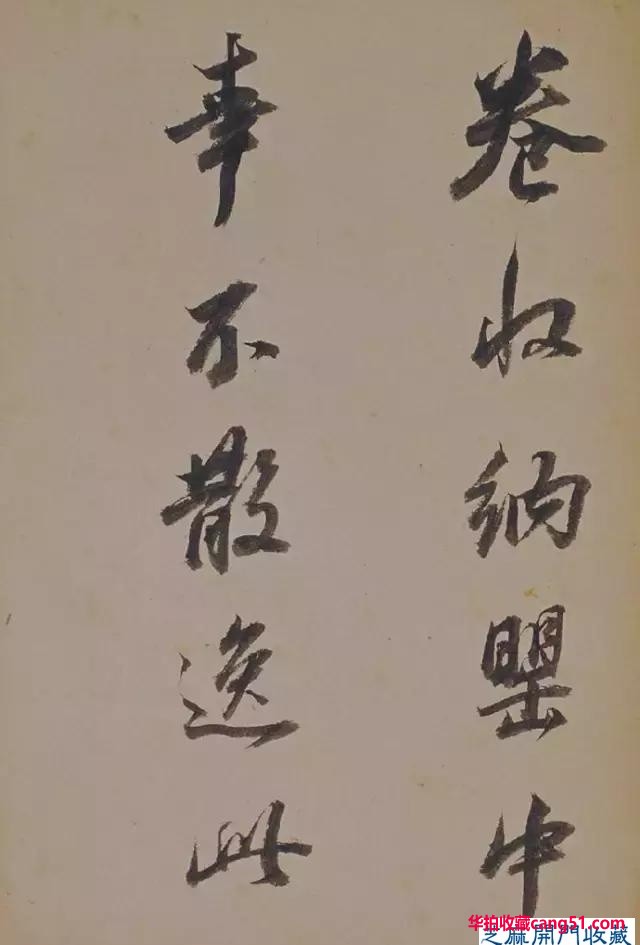 卷收納罌中
幸不散逸此
华拍收藏cang51.com
芝麻開門收藏